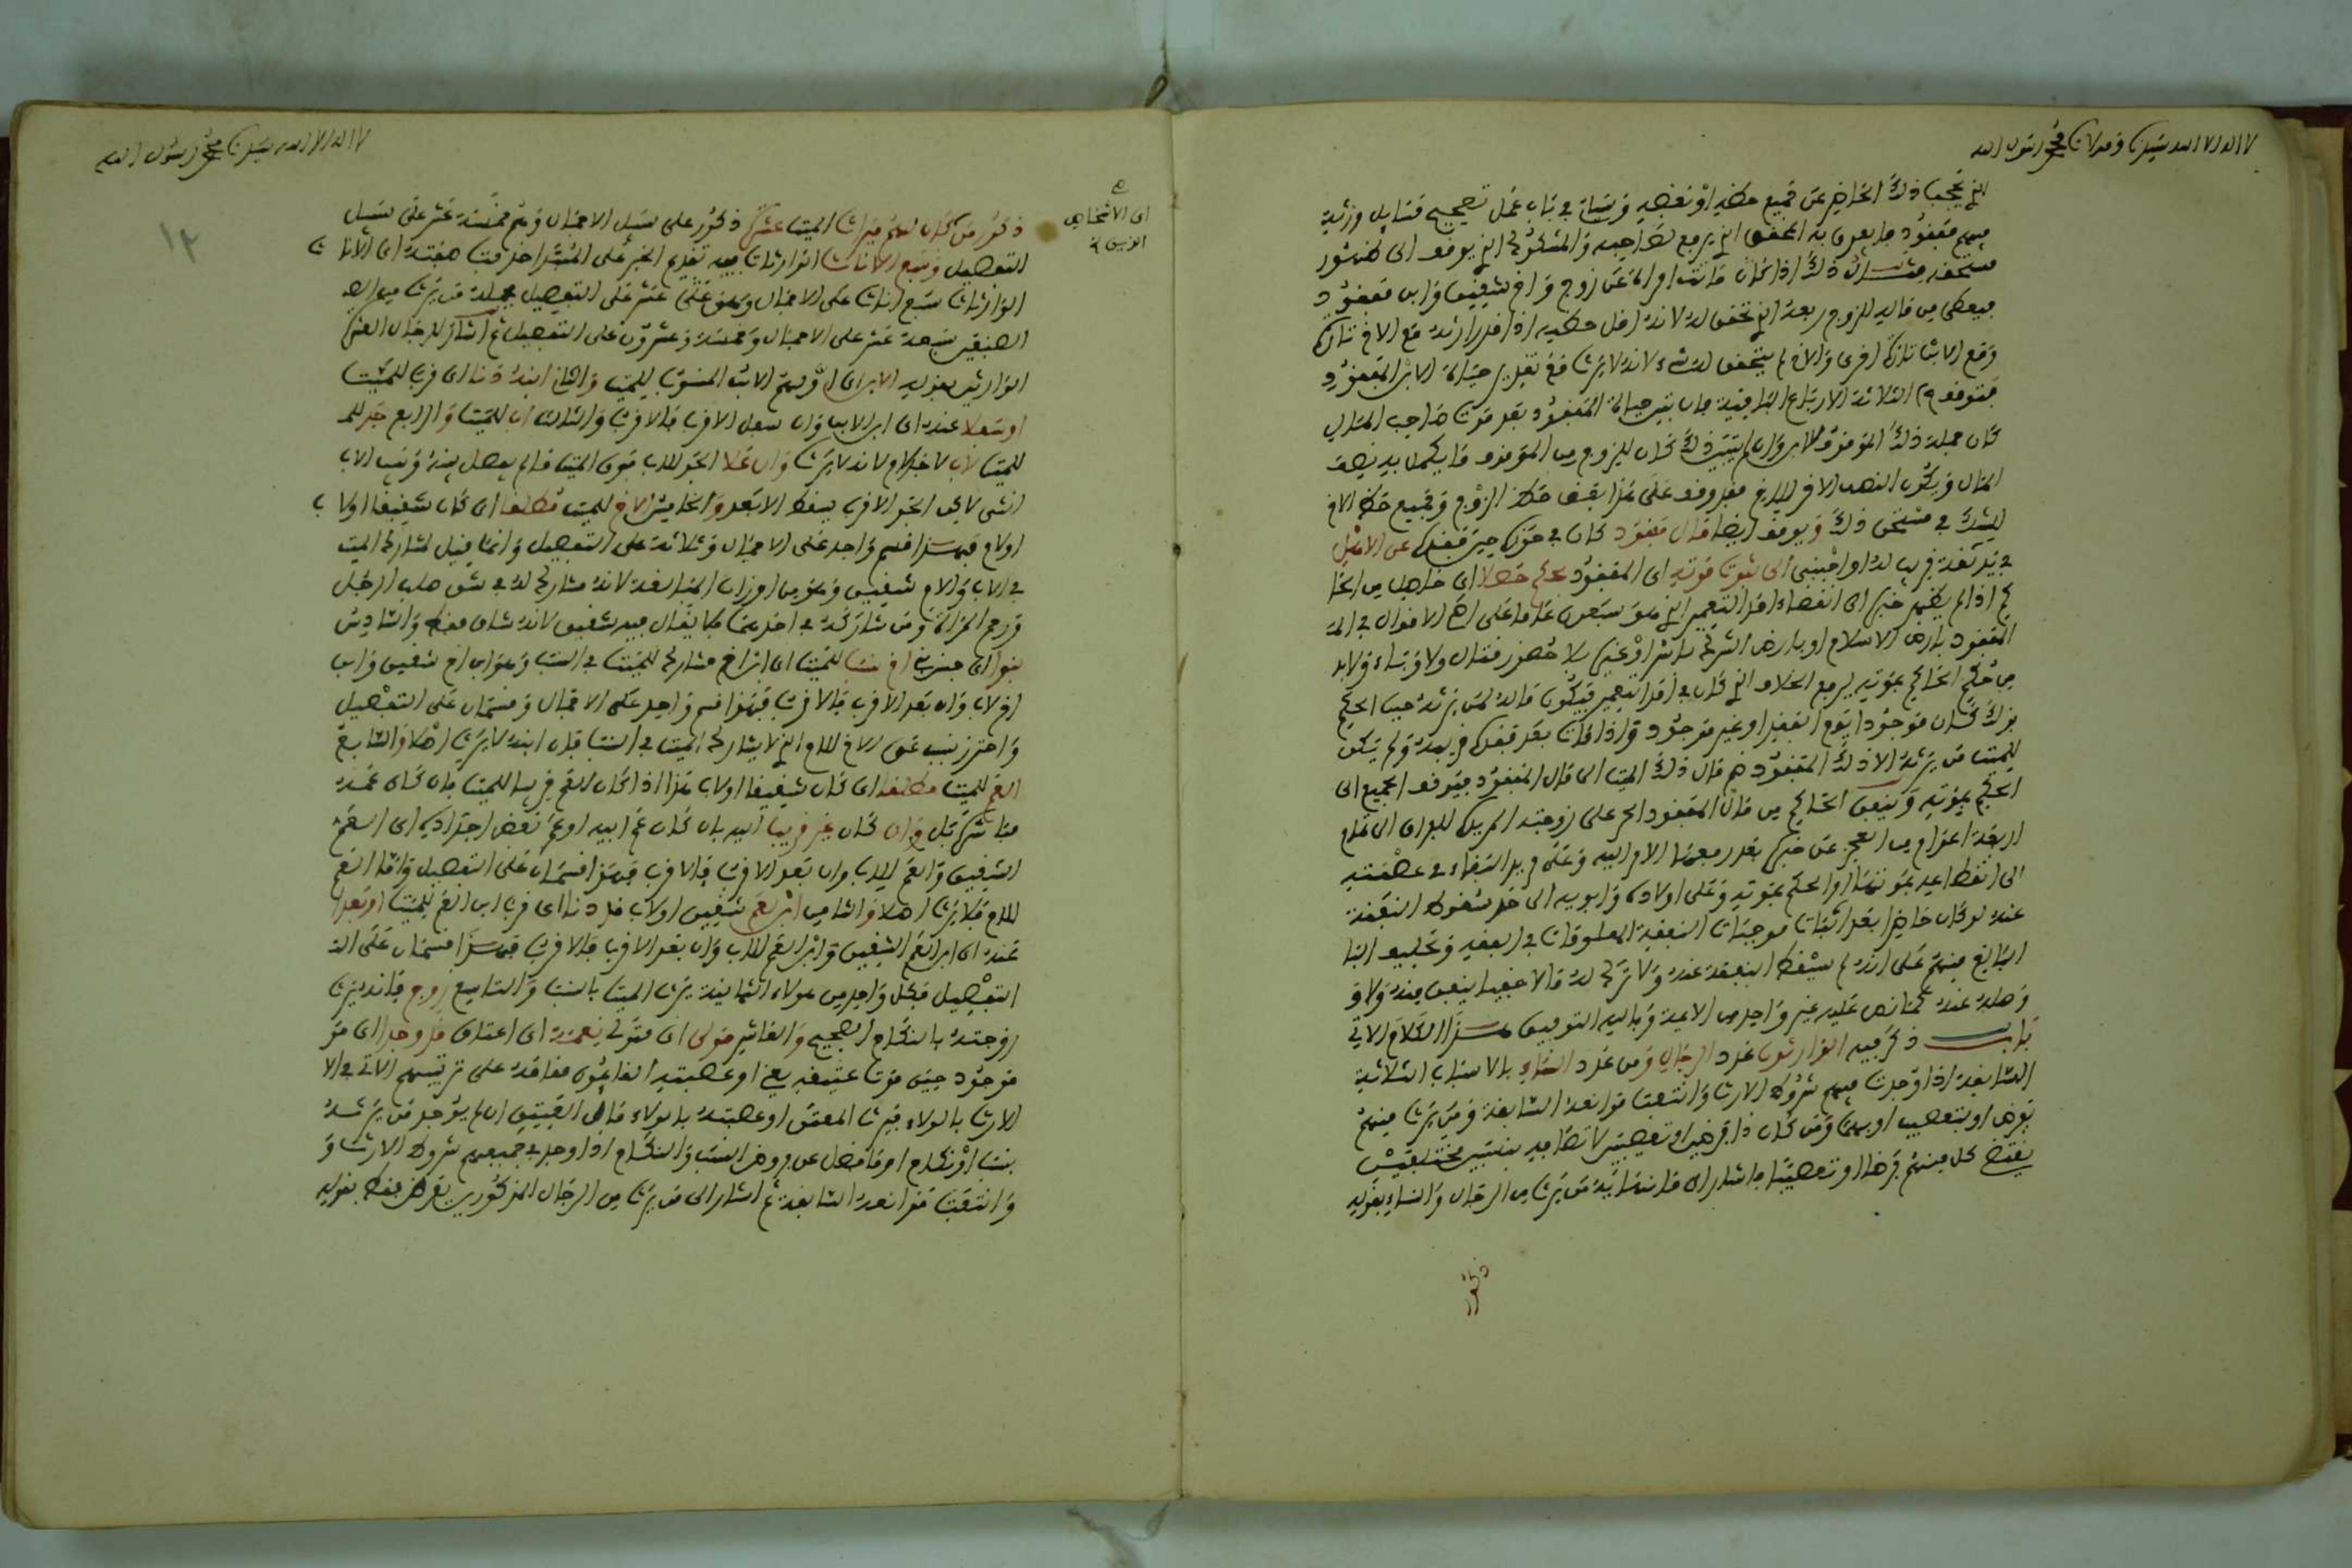 لا اله الا الله سيدنا ومولانا محمد رسول الله
الذي يحجب ذلك الحاضر عن جميع حظه او بعضه وسيأتي في باب عمل تصحيح مسايل ورثة
فيهم مفقود ما يعرف به المحقق الذي يرجع لصاحبه والمشكوك الذي يوقف الى ظهور
مستحقه مثال ذلك اذا كان ماتت امراة عن زوج واخ شقيق وابن مفقود
فيعطى من ماله للزوج ربعه الذي تحقق له لانه اقل حظيه
ولم يتحقق له شيء لانه لا يرث مع تقدير حياة الابن المفقود
فتوقف الثلاثة الارباع الباقية فان تبين حياة المفقود بعد موت صاحب المال
كان جملة ذلك الموقوف للابن وان لم يتبين ذلك كان للزوج من الموقوف ما يكمل به نصف
المال ويكون النصف الاخر للاخ فقد وقف على هذا بعض حظ الزوج وجميع حظ الاخ
للشك في مستحق ذلك ويوقف ايضا مال مفقود كان في حوزه حين فقده عن الاهل
في يد ثقة قريب له او اجنبي الى ثبوت موته اي المفقود بحكم حصلا اي حاصل من الحا
كم اذا لم يظهر خبره الى انقضاء امد التعمير الذي هو سبعون عاما على اصح الاقوال في المذ
المفقود بارض الاسلام او بارض الشرك باسر او غيره بلا حضور قتال ولا وباء ولابد
من حكم الحاكم بموته ليرفع الخلاف الذي كان في امد التعمير فيكون ماله لمن يرثه حين الحكم
بذلك كان موجودا يوم الفقد او غير موجود واذا مات بعد فقده قريبه ولم يكن
للميت من يرثه الا ذلك المفقود ضم مال ذلك الميت الى مال المفقود فيوقف الجميع الى
الحكم بموته وينفق الحاكم من مال المفقود الحر على زوجته المريدة للفراق الى تمام
اربعة اعوام من العجز عن خبره بعد رفعها الامر اليه وعلى مريد البقاء في عصمته
الى انقطاعه بموتها او الحكم بموته وعلى اولاده وابويه الى حد سقوط النفقة
عنه لو كان حاضرا بعد اثبات موجبات النفقة المعلومات في الفقه وتحليف البا
البالغ منهم على انه لم يسقط النفقة عنه ولا ترك له مالا غيبا ينفق منه ولا و
وصله عنه كما نص عليه غير واحد من الايمة وبالله التوفيق هذا الكلام الاتي
باب ذكر فيه الوارثون عدد الرجال ومن عدد النساء بالاسباب الثلاثة
السابقة اذا وجدت فيهم شروط الارث وانتفت موانعه السابقة ومن يرث منهم
بفرض او بتعصيب او بهما ومن كان ذا فرضين او تعصيبين
يقتضي كل منهم فرضا او تعصيبا فاشار الى ما ابتدا به من يرث من الرجال والنساء بقوله
ذكور
لا اله الا الله سيدنا محمد رسول الله
١٢
اي الاشخاص
الذين
ذكور من كان لهم ميراث الميت عشرة ذكور على سبيل الاجمال وهم خمسة عشر على سبيل
التفصيل وسبع الاناث الوارثات فيه تقديم الخبر على المبتدا
الوارثات سبع اناث على الاجمال
الصنفين سبعة عشر على الاجمال وخمسة وعشرون على التفصيل ثم اشار للرجال العشرة
الوارثين بقوله الابن اي اولهم الابن المنسوب للميت والثاني ابنه دنا اي قرب للميت
او سفلا عنه اي ابن الابن وان سفل الاقرب فالاقرب والثالث اب للميت والرابع جد للمـ
للميت لاب لا جد لام لانه لا يرث وان علا الجد للاب فوق الميت ما لم يفصل بينه وبين الاب
انثى لاكن الجد الاقرب يسقط الابعد والخامس الاخ للميت مطلقا اي كان شقيقا او لاب
او لام فهذا قسم واحد على الاجمال وثلاثة على التفصيل وانما قيل لمشارك الميت
في الاب والام شقيق وهو من اوزان المبالغة لانه مشارك له في شق صلب الرجل
ورحم المراة ومن شاركه في احدهما فلا يقال فيه شقيق لانه شاق فقط والسادس
بنوا اي جنس ابن اخ نسبا للميت اي ابن اخ مشارك للميت في النسب وهو ابن اخ شقيق وابن
اخ لاب وان بعد الاقرب فالاقرب فهذا قسم واحد على الاجمال وقسمان على التفصيل
واحترز بنسب عن الاخ للام الذي لا يشارك الميت في النسب فان ابنه لا يرث اصلا والسابع
العم للميت مطلقا اي كان شقيقا او لاب هذا اذا كان العم قريبا للميت بان كان عمه
مباشرة بل وان كان غير قريبا اليه بان كان عم ابيه او عم بعض اجداده اي العم
الشقيق والعم للاب وان بعد الاقرب فالاقرب فهذا قسمان على التفصيل واما العم
للام فلا يرث اصلا والثامن ابن عم شقيق او لاب قد دنا اي قرب ابن العم للميت او بعدا
عنه اي ابن العم الشقيق وابن العم للاب وان بعد الاقرب فالاقرب فهذا قسمان على التـ
التفصيل فكل واحد من هولاء الثمانية يرث الميت بالنسب والتاسع زوج فانه يرث
زوجته بالنكاح الصحيح والعاشر مولى اي متولي نعمة اي اعتاق قد وجدا اي هو
موجود حين موت عتيقه يعني او عصبته القائمون مقامه على ترتيبهم الاتي في الا
الارث بالولاء فيرث المعتق او عصبته بالولاء مال العتيق ان لم يوجد من يرثه
بنسب او نكاح او ما فضل عن فروض النسب والنكاح اذا وجد في جميعهم شروط الارث و
وانتفت موانعه السابقة ثم اشار الى من يرث من الرجال المذكورين بفرض فقط بقوله